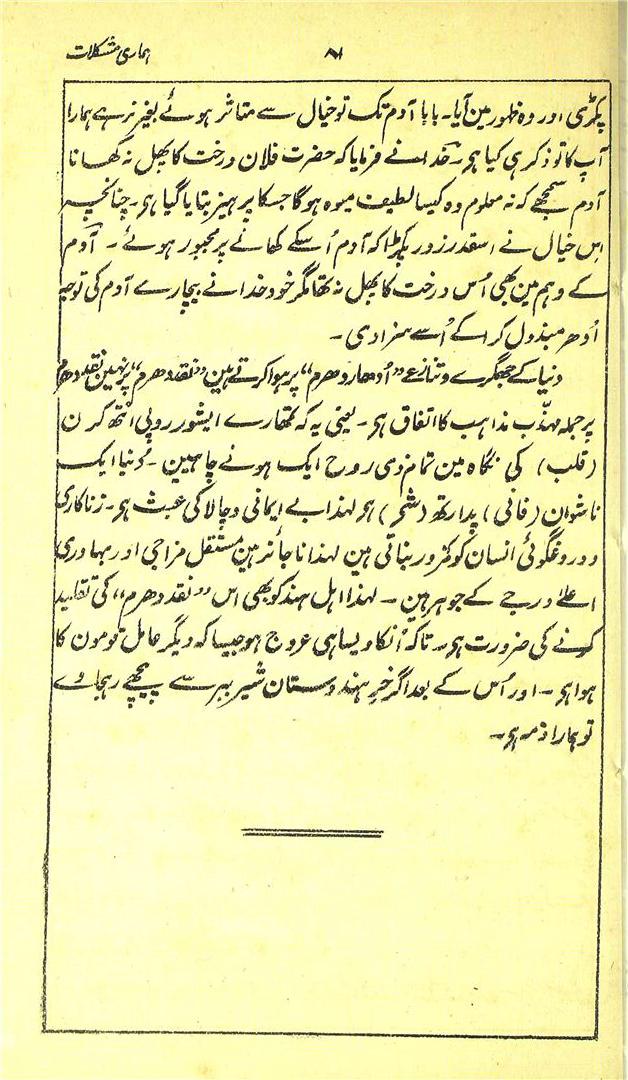 ہماری مشکلات
۸
پکڑی اور وہ ظہور مین آیا۔ بابا آدم تک تو خیال سے متاثر ہوئے بغیر نرہے ہمارا
آپ کا تو ذکر ہی کیا ہو۔ خدا نے فرمایا کہ حضرت فلان درخت کا پھل نہ کھانا
آدم سمجھے کہ نہ معلوم وہ کیسا لطیف میوہ ہوگا جسکا پرہیز بتایا گیا ہو۔ چنانچہ
اِس خیال نے اسقدر زور پکڑا کہ آدم اُسکے کھانے پر مجبور ہوئے۔ آدم
کے وہم مین بھی اُس درخت کا پھل نہ تھا مگر خود خدا نے بیچارے آدم کی توجہ
اُدھر مبذول کرا کے اُسے سزا دی۔
دنیا کے جھگڑے و تنازعے ”اُدھار دھرم“ پر ہوا کرتے ہین ”نقد دھرم“ پر نہین نقد دھرم
پر جملہ مہذّب مذاہب کا اتفاق ہو۔ یعنی یہ کہ تمھارے ایشور روپی انتھ کرن
(قلب) کی نگاہ مین تمام ذی روح ایک ہونے چاہیین۔ دُنیا ایک
ناشوان (فانی) پدارتھ (شے) ہو لہذا بے ایمانی و چالاکی عبث ہو۔ زناکاری
و دروغگوئی انسان کو کمزور بناتی ہین لہذا ناجائز ہین مستقل مزاجی اور بہادری
اعلےٰ درجے کے جوہر ہین۔ لہذا اہل ہند کو بھی اس ”نقد دھرم“ کی تقلید
کرنے کی ضرورت ہو۔ تاکہ اُنکا ویسا ہی عروج ہو جیسا کہ دیگر عامل قومون کا
ہوا ہو۔ اور اُس کے بعد اگر خرِ ہندوستان شیر ببر سے پیچھے رہجاوے
تو ہمارا ذمہ ہو۔